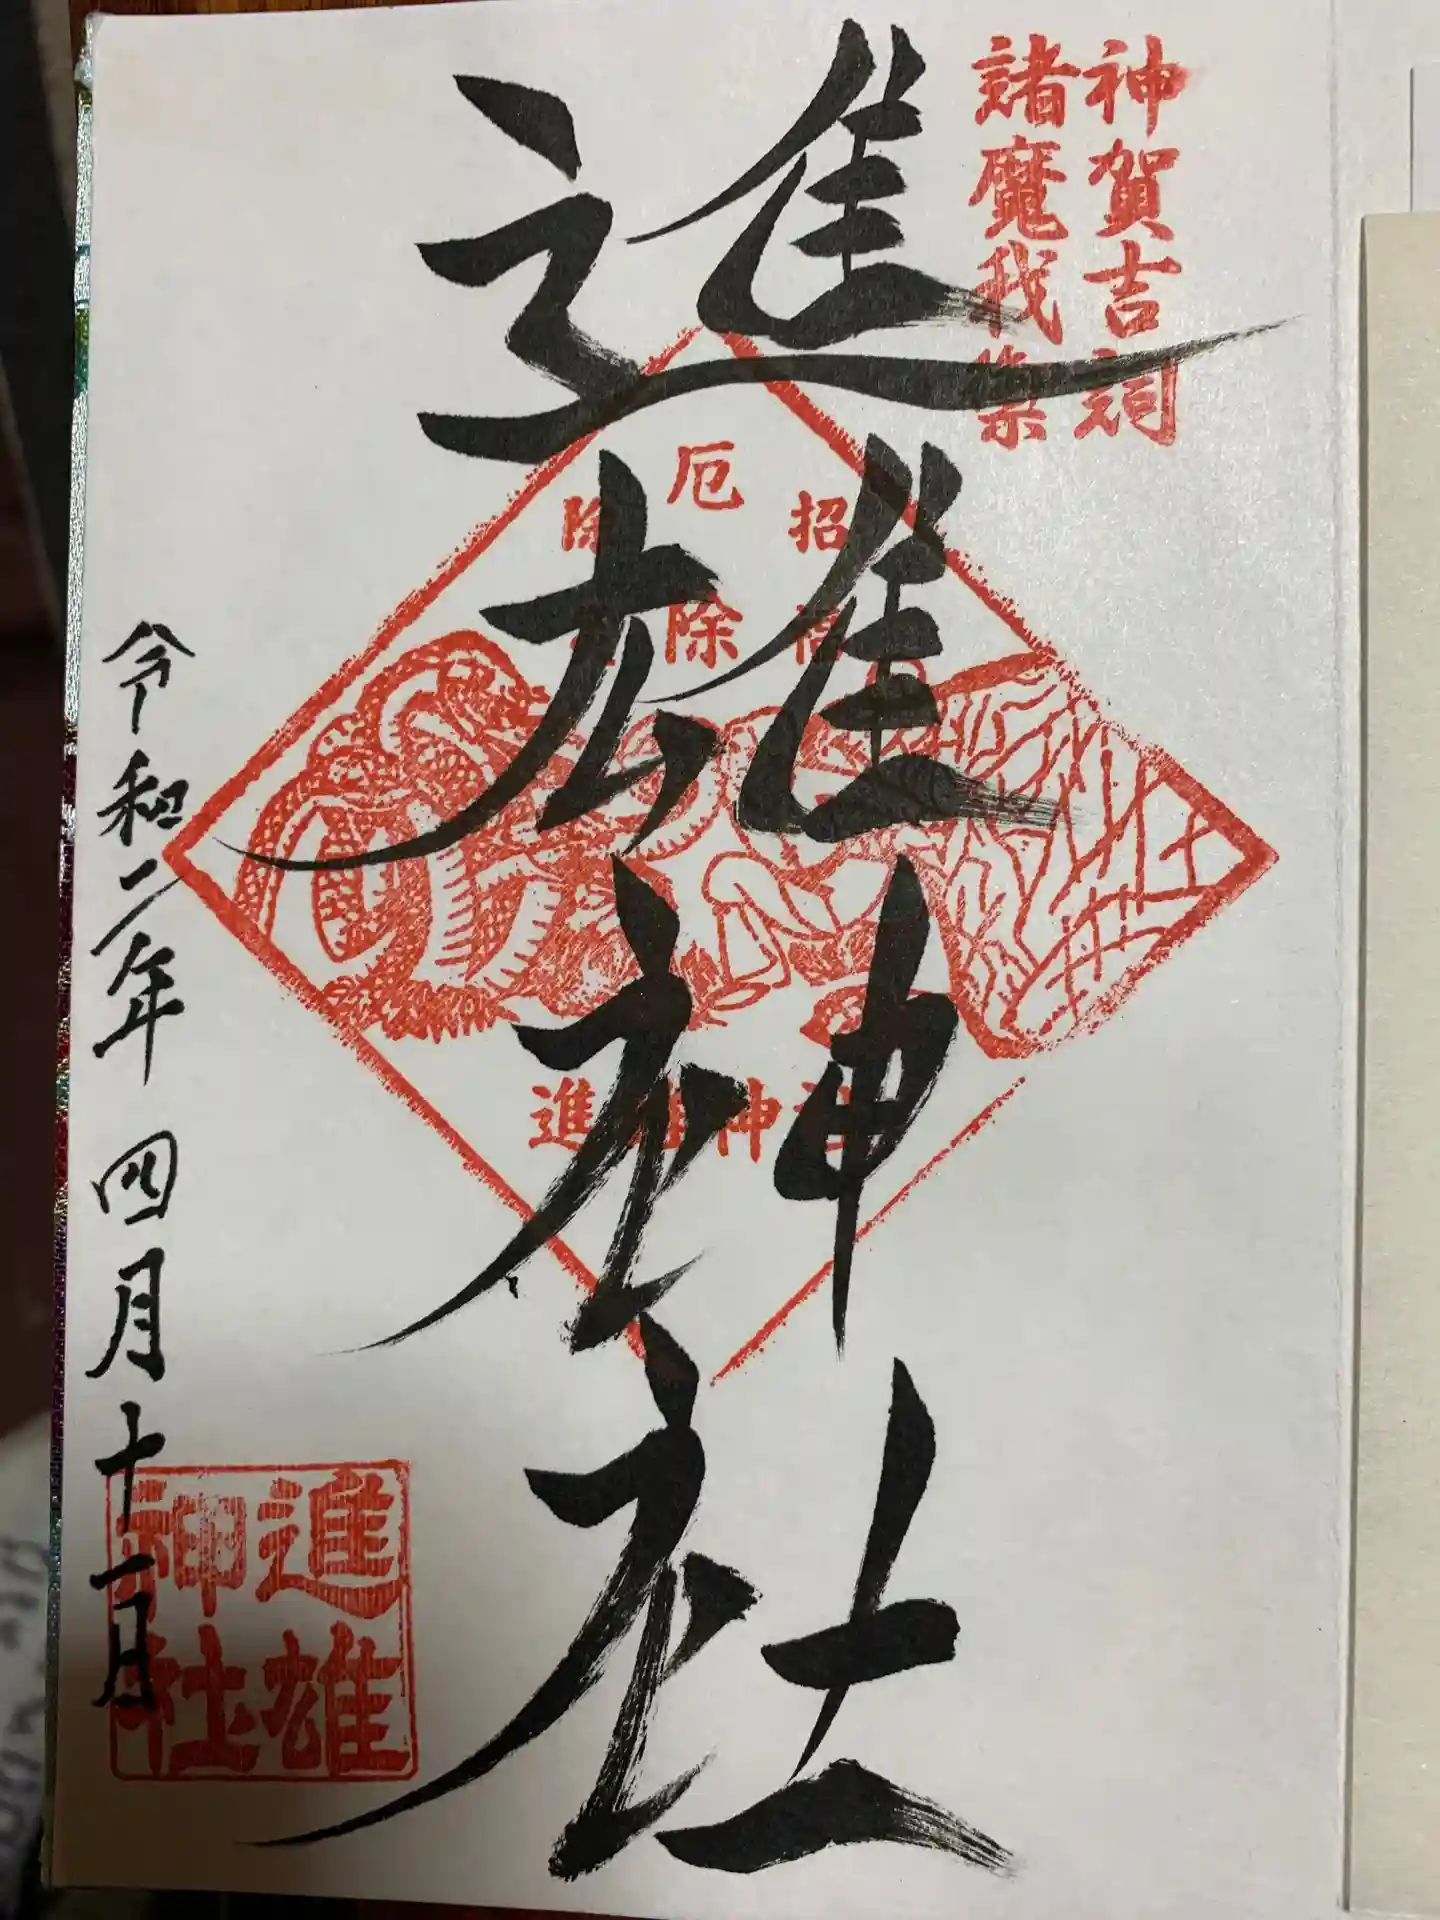 神賀吉詞
諸魔我祟
進雄神社
厄除
招福
除
進雄神社
令和二年四月十一日
進雄
神社